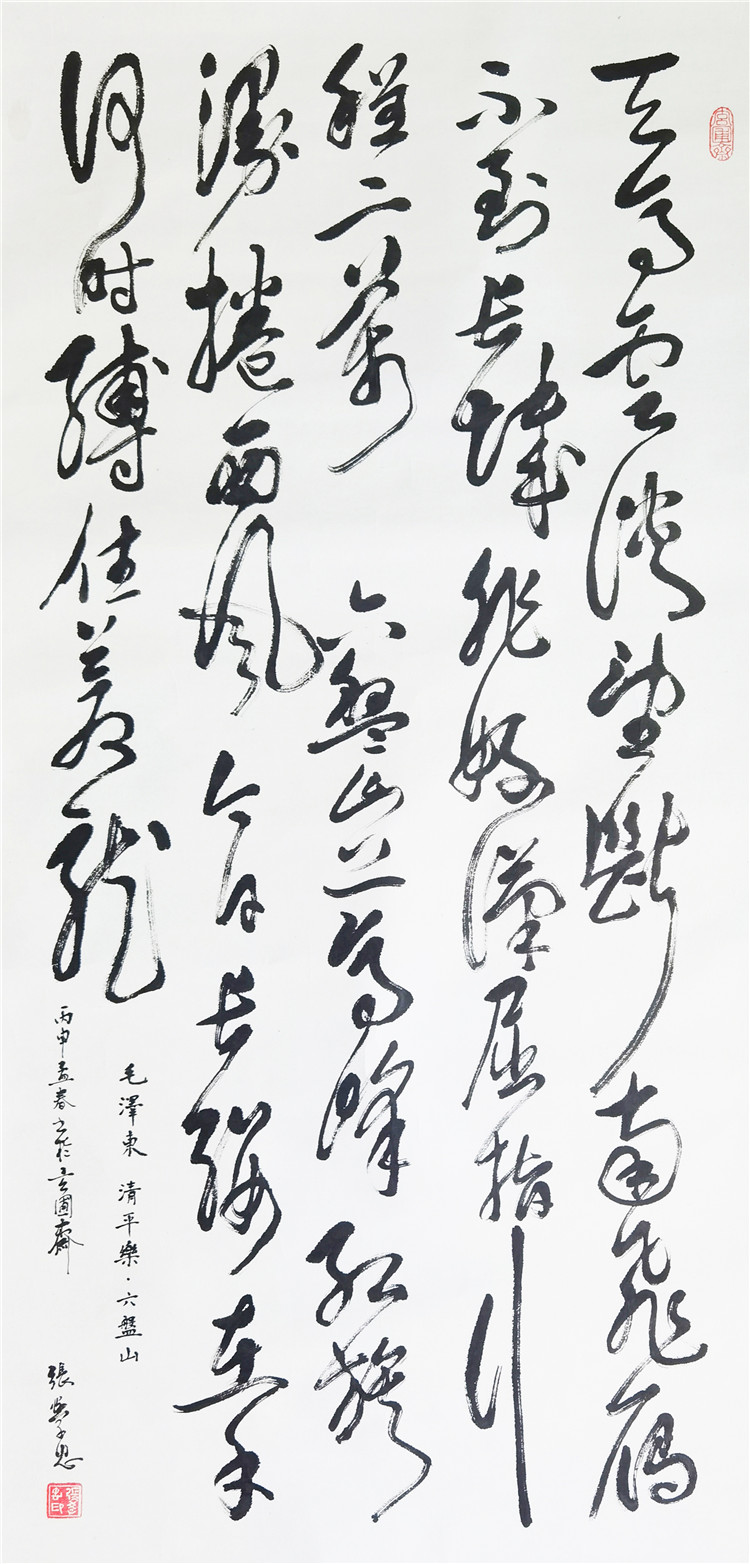 天高雲淡望斷南飛雁
不到長城非好漢屈指行
程二萬 六盤山上高峰 紅旗
漫捲西風 今日長纓在手
何时縛住蒼龍
毛澤東 清平樂·六盤山
丙申孟春書於玄圃齋 張學思